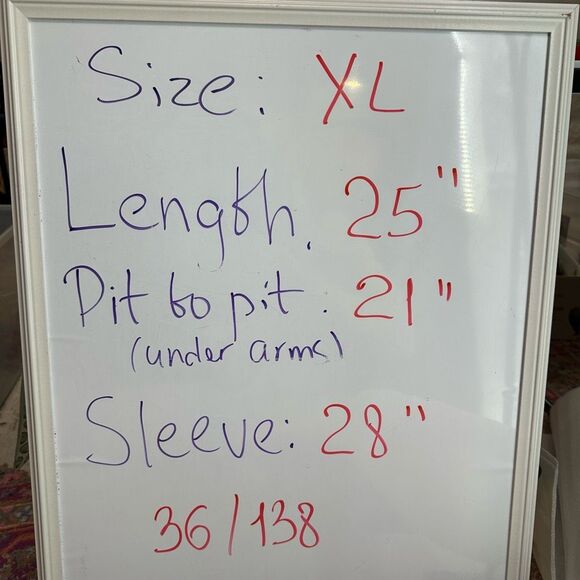 Size: XL
Length. 25"
Pit to pit: 21"
(under arms)
Sleeve: 28"
36/138